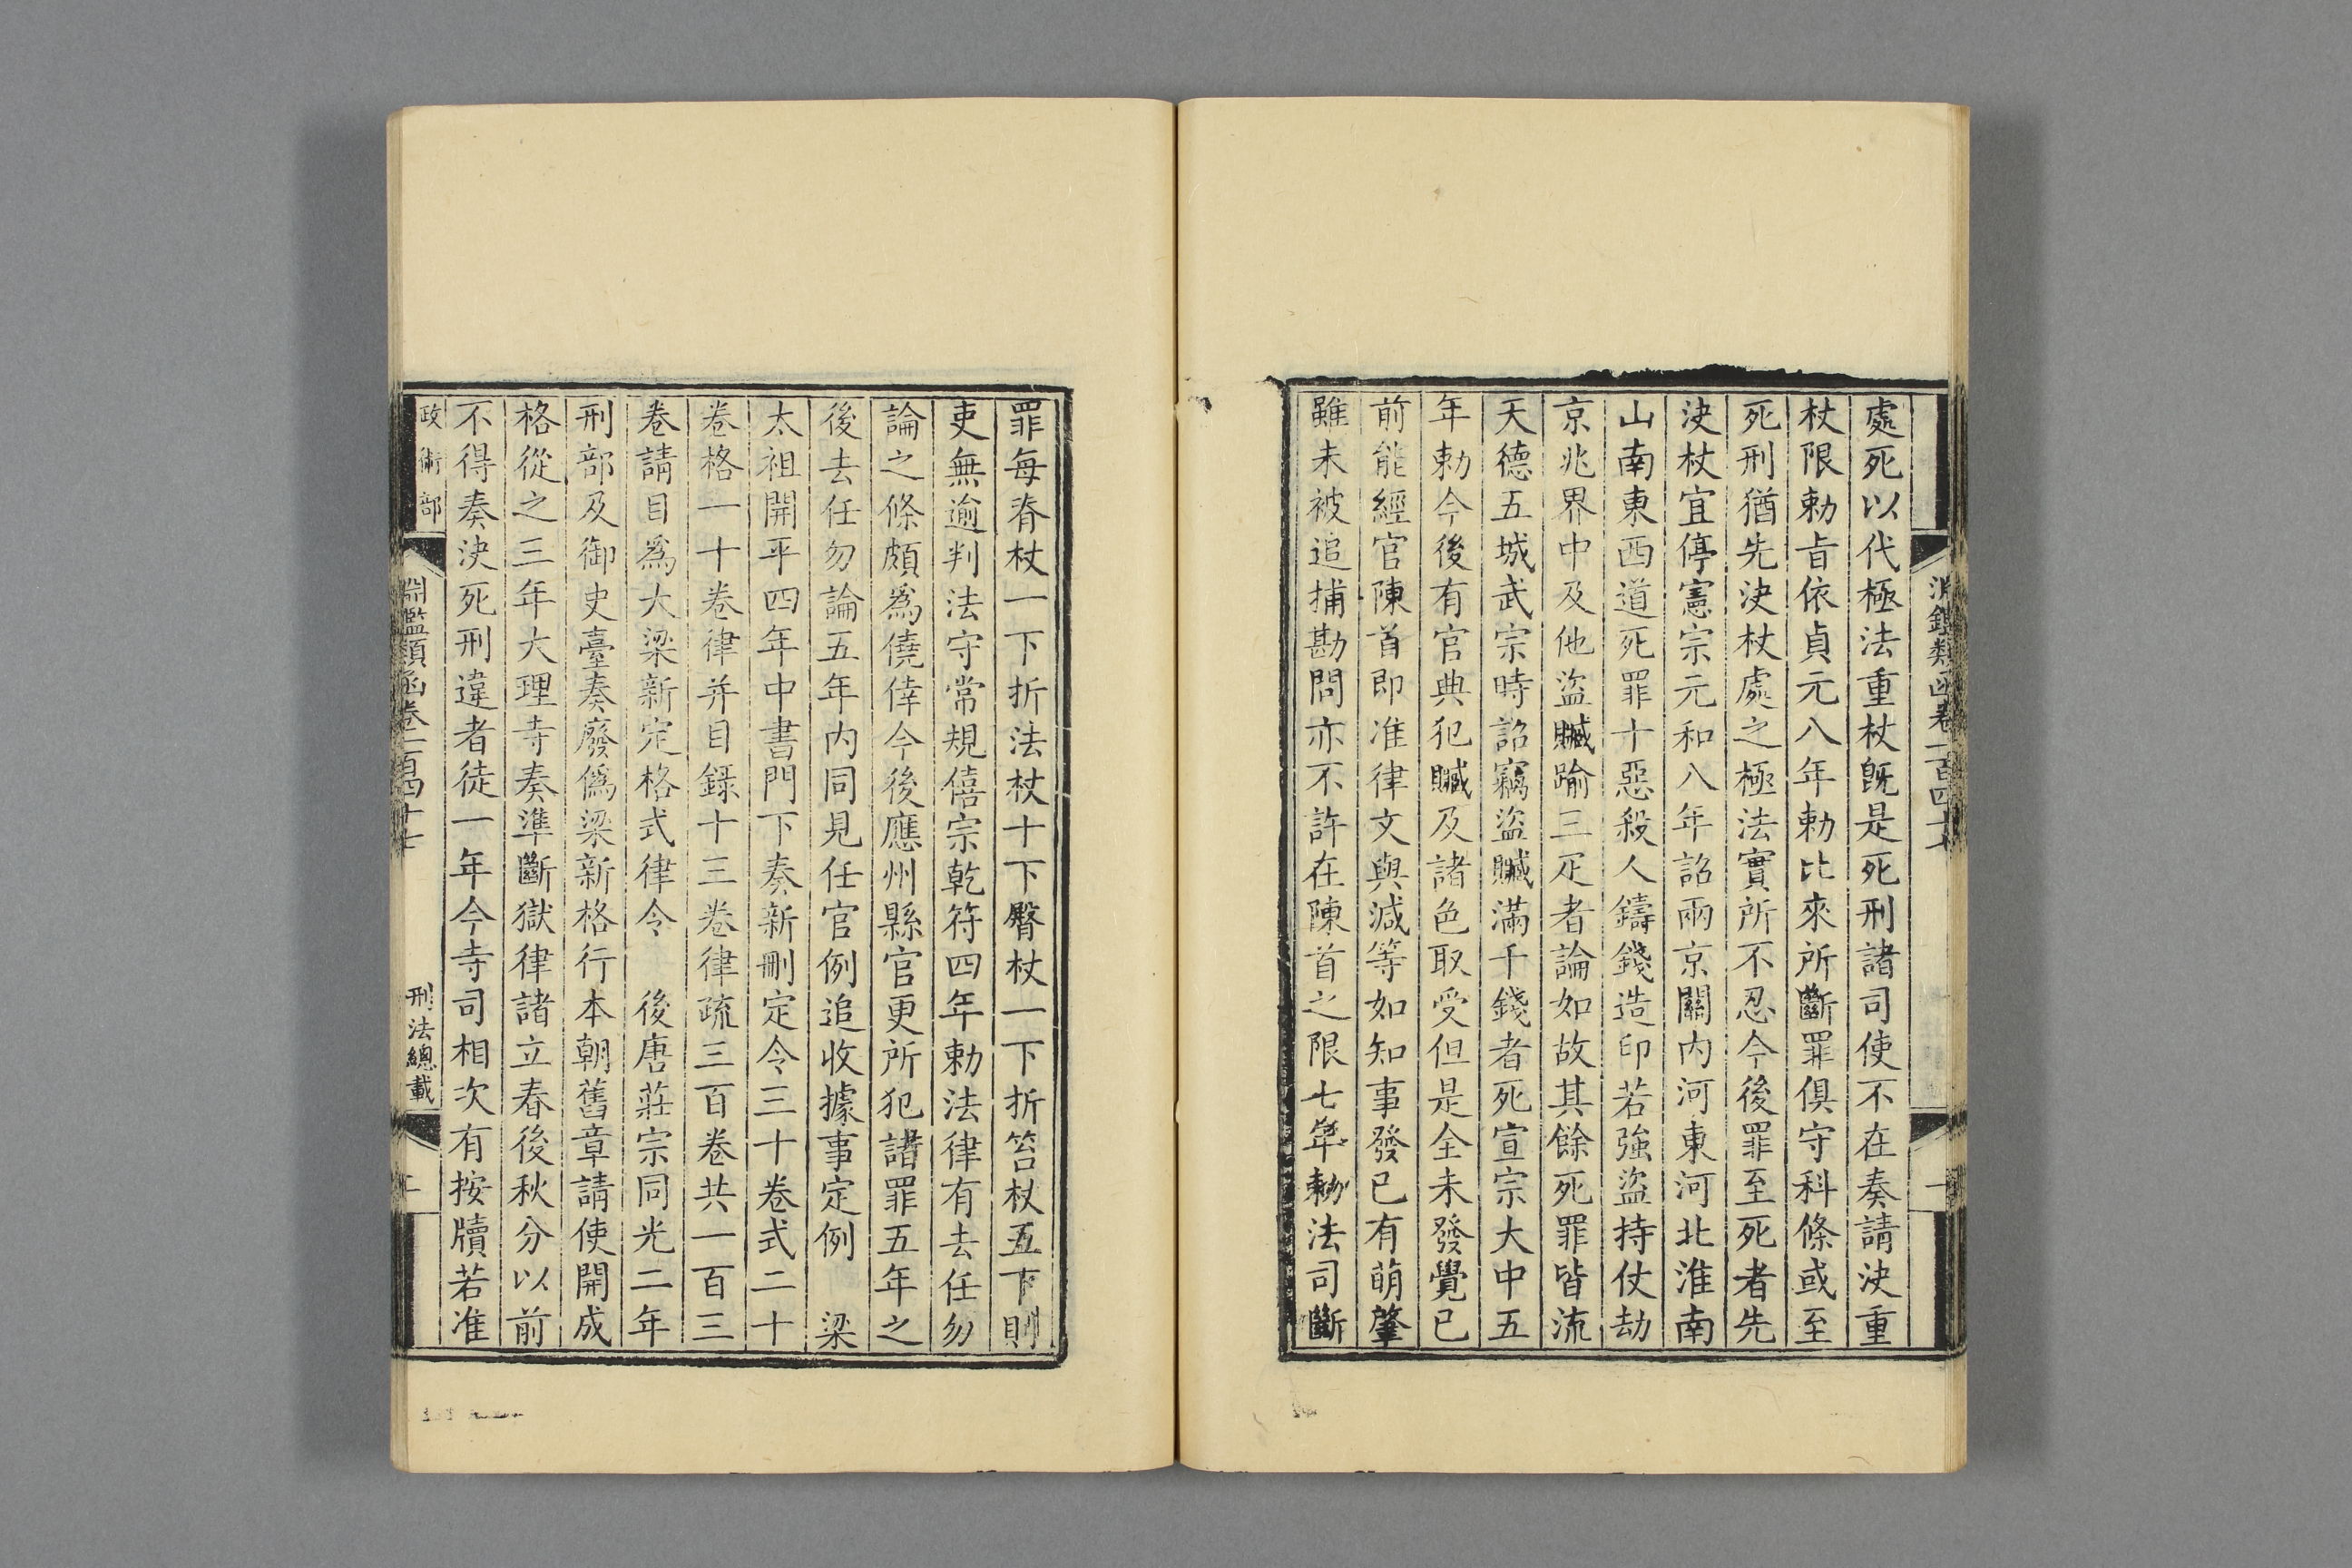 處死以代極法重杖既是死刑諸司使不在奏請決重
杖限勅旨依貞元八年勅比來所斷罪俱守科條或至
死刑猶先決杖處之極法實所不忍今後罪至死者先
決杖宜停憲宗元和八年詔兩京關內河東河北淮南
山南東西道死罪十惡殺人鑄錢造印若強盜持仗劫
京兆界中及他盜贓踰三疋者論如故其餘死罪皆流
天德五城武宗時詔竊盜贓滿千錢者死宣宗大中五
年勅今後有官典犯贓及諸色取受但是全未發覺已
前能經官陳首即准律文與減等如知事發已有萌肇
雖未被追捕勘問亦不許在陳首之限七年勅法司斷
罪每脊杖一下折法杖十下臀杖一下折笞杖五下則
吏無逾判法守常規僖宗乾符四年勅法律有去任勿
論之條頗為僥倖今後應州縣官更所犯諸罪五年之
後去任勿論五年內同見任官例追收據事定例　梁
太祖開平四年中書門下奏新刪定令三十卷式二十
卷格一十卷律并目錄十三卷律疏三百卷共一百三
卷請目為大梁新定格式律令　後唐莊宗同光二年
刑部及御史臺奏廢偽梁新格行本朝舊章請使開成
格從之三年大理寺奏準斷獄律諸立春後秋分以前
不得奏決死刑違者徒一年今寺司相次有按牘若准
政術部
淵鑑類函卷一百四十七
刑法總載